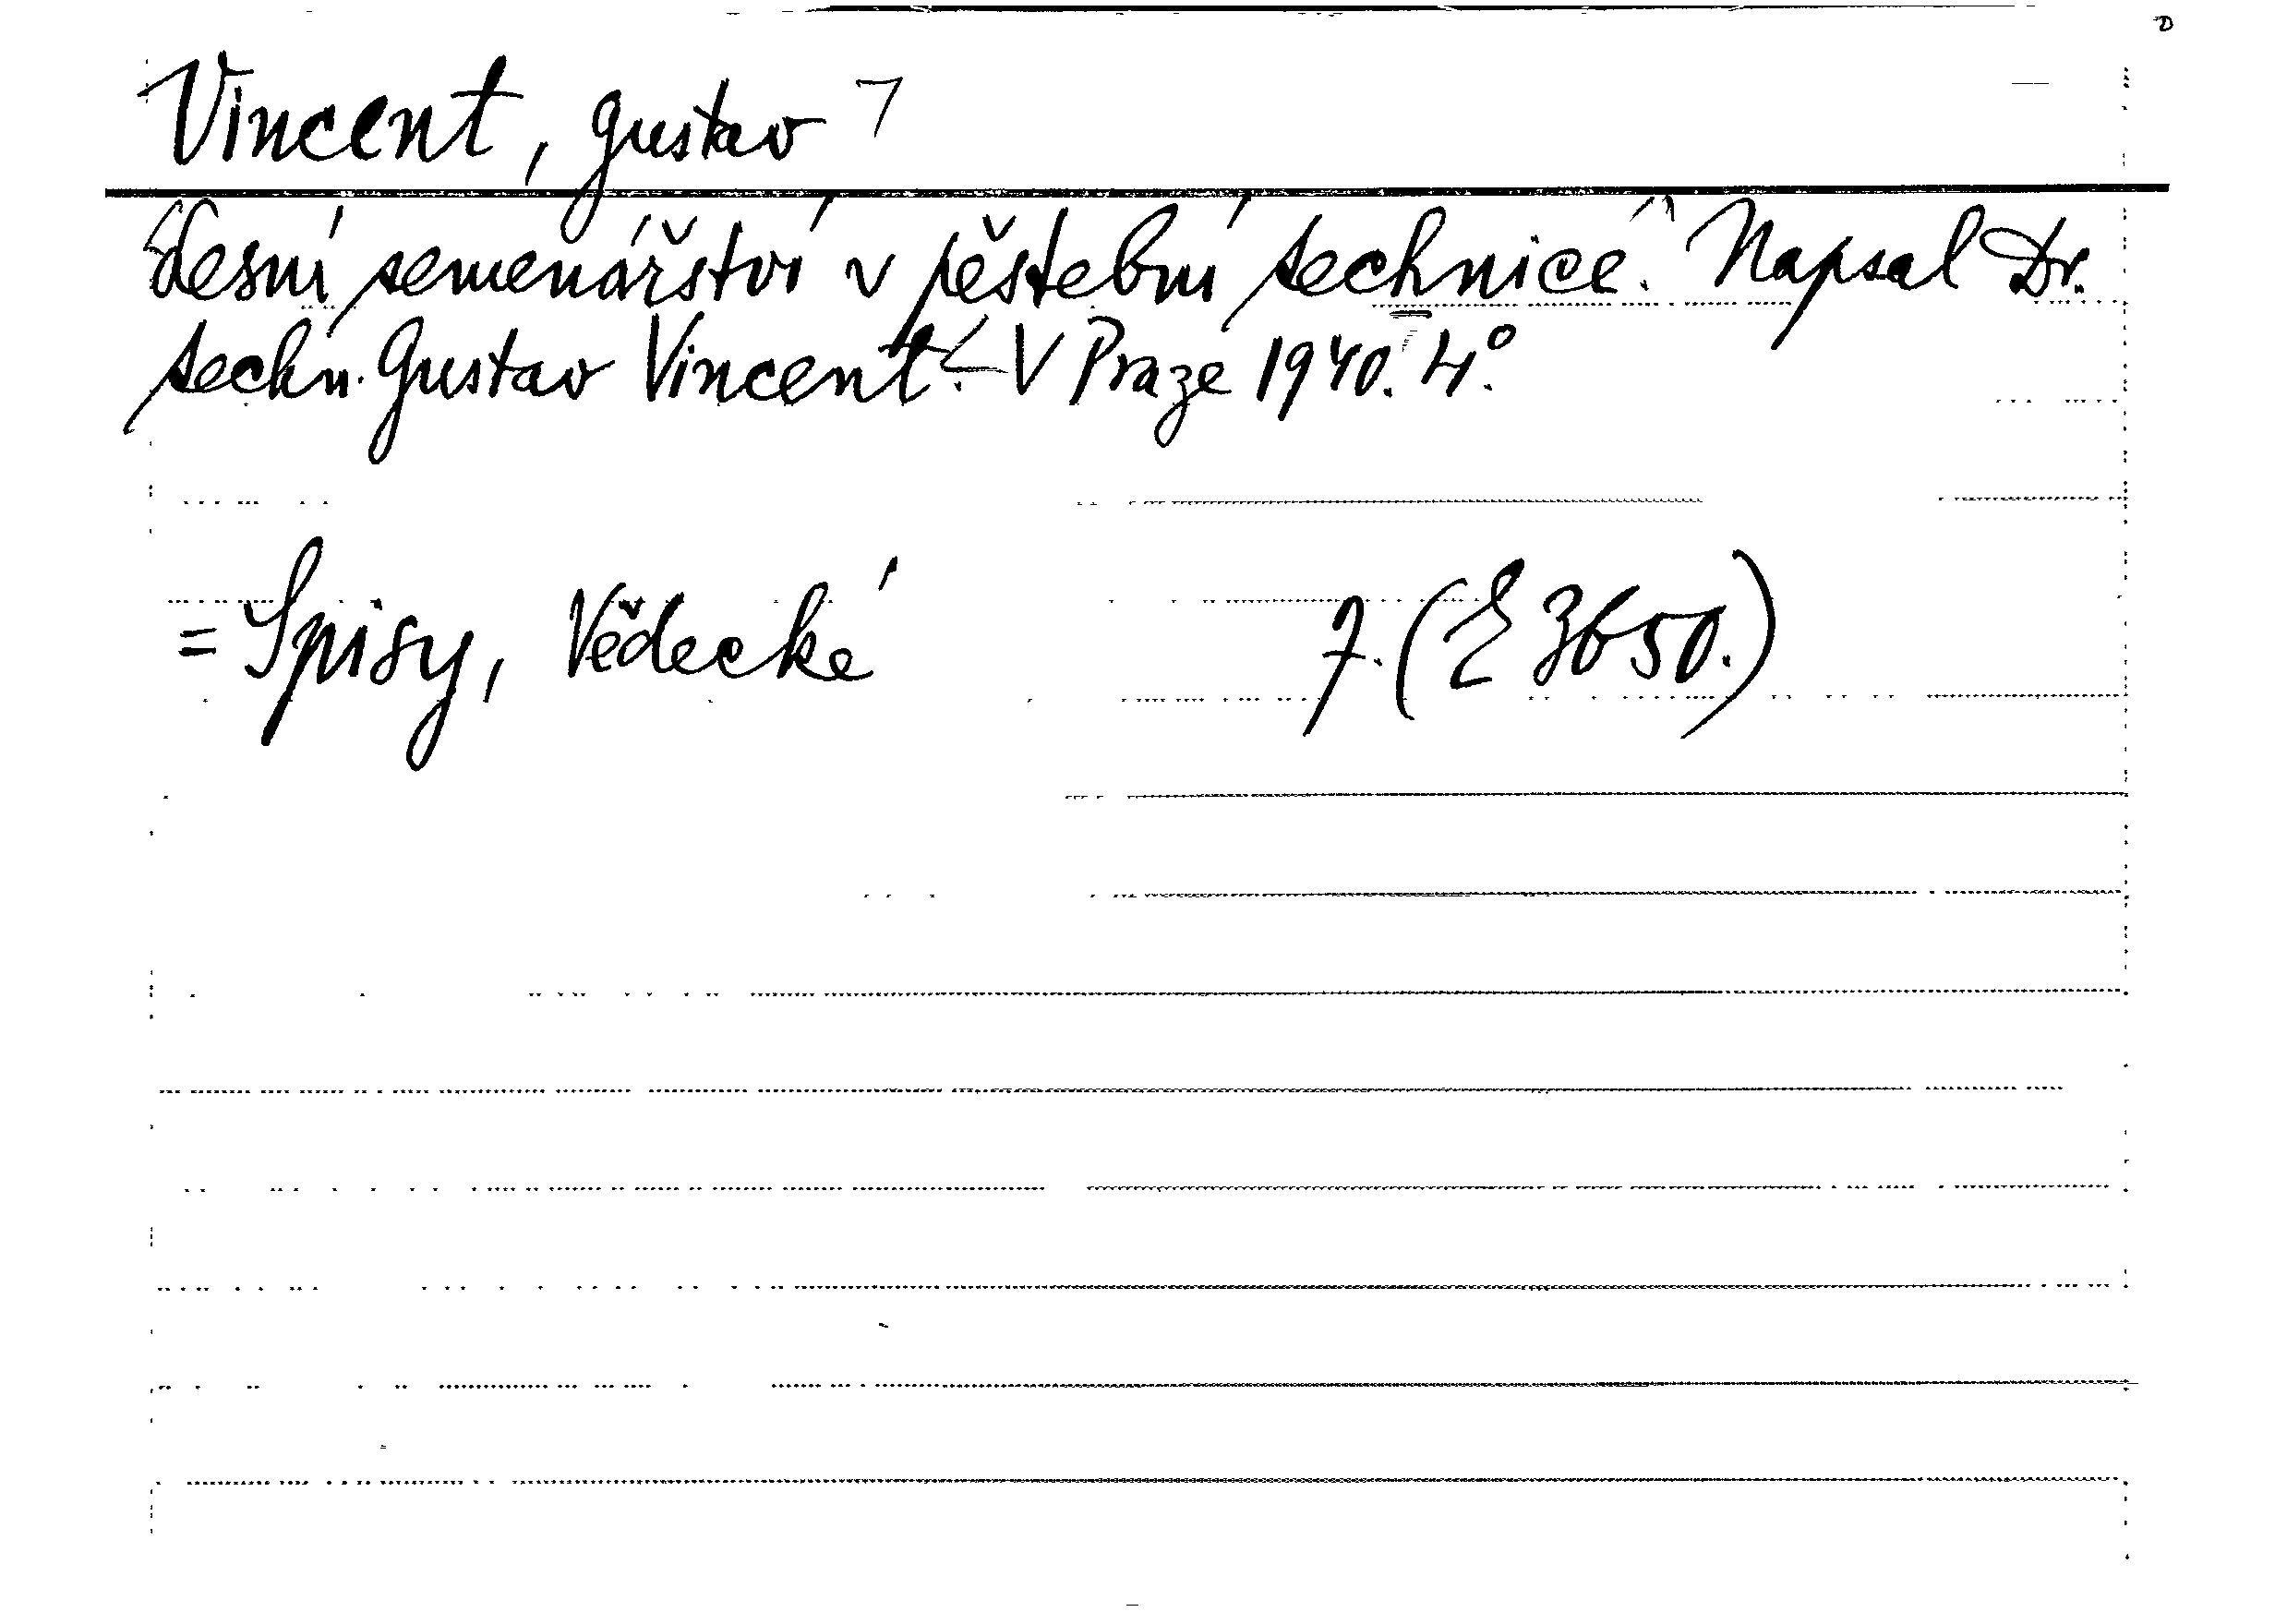 Vincent, Gustav
Lesní semenářství v pěstební technice. Napsal Dr.
techn. Gustav Vincent. – V Praze 1940. 4°.
= Spisy, Vědecké 7. (E 3650.)